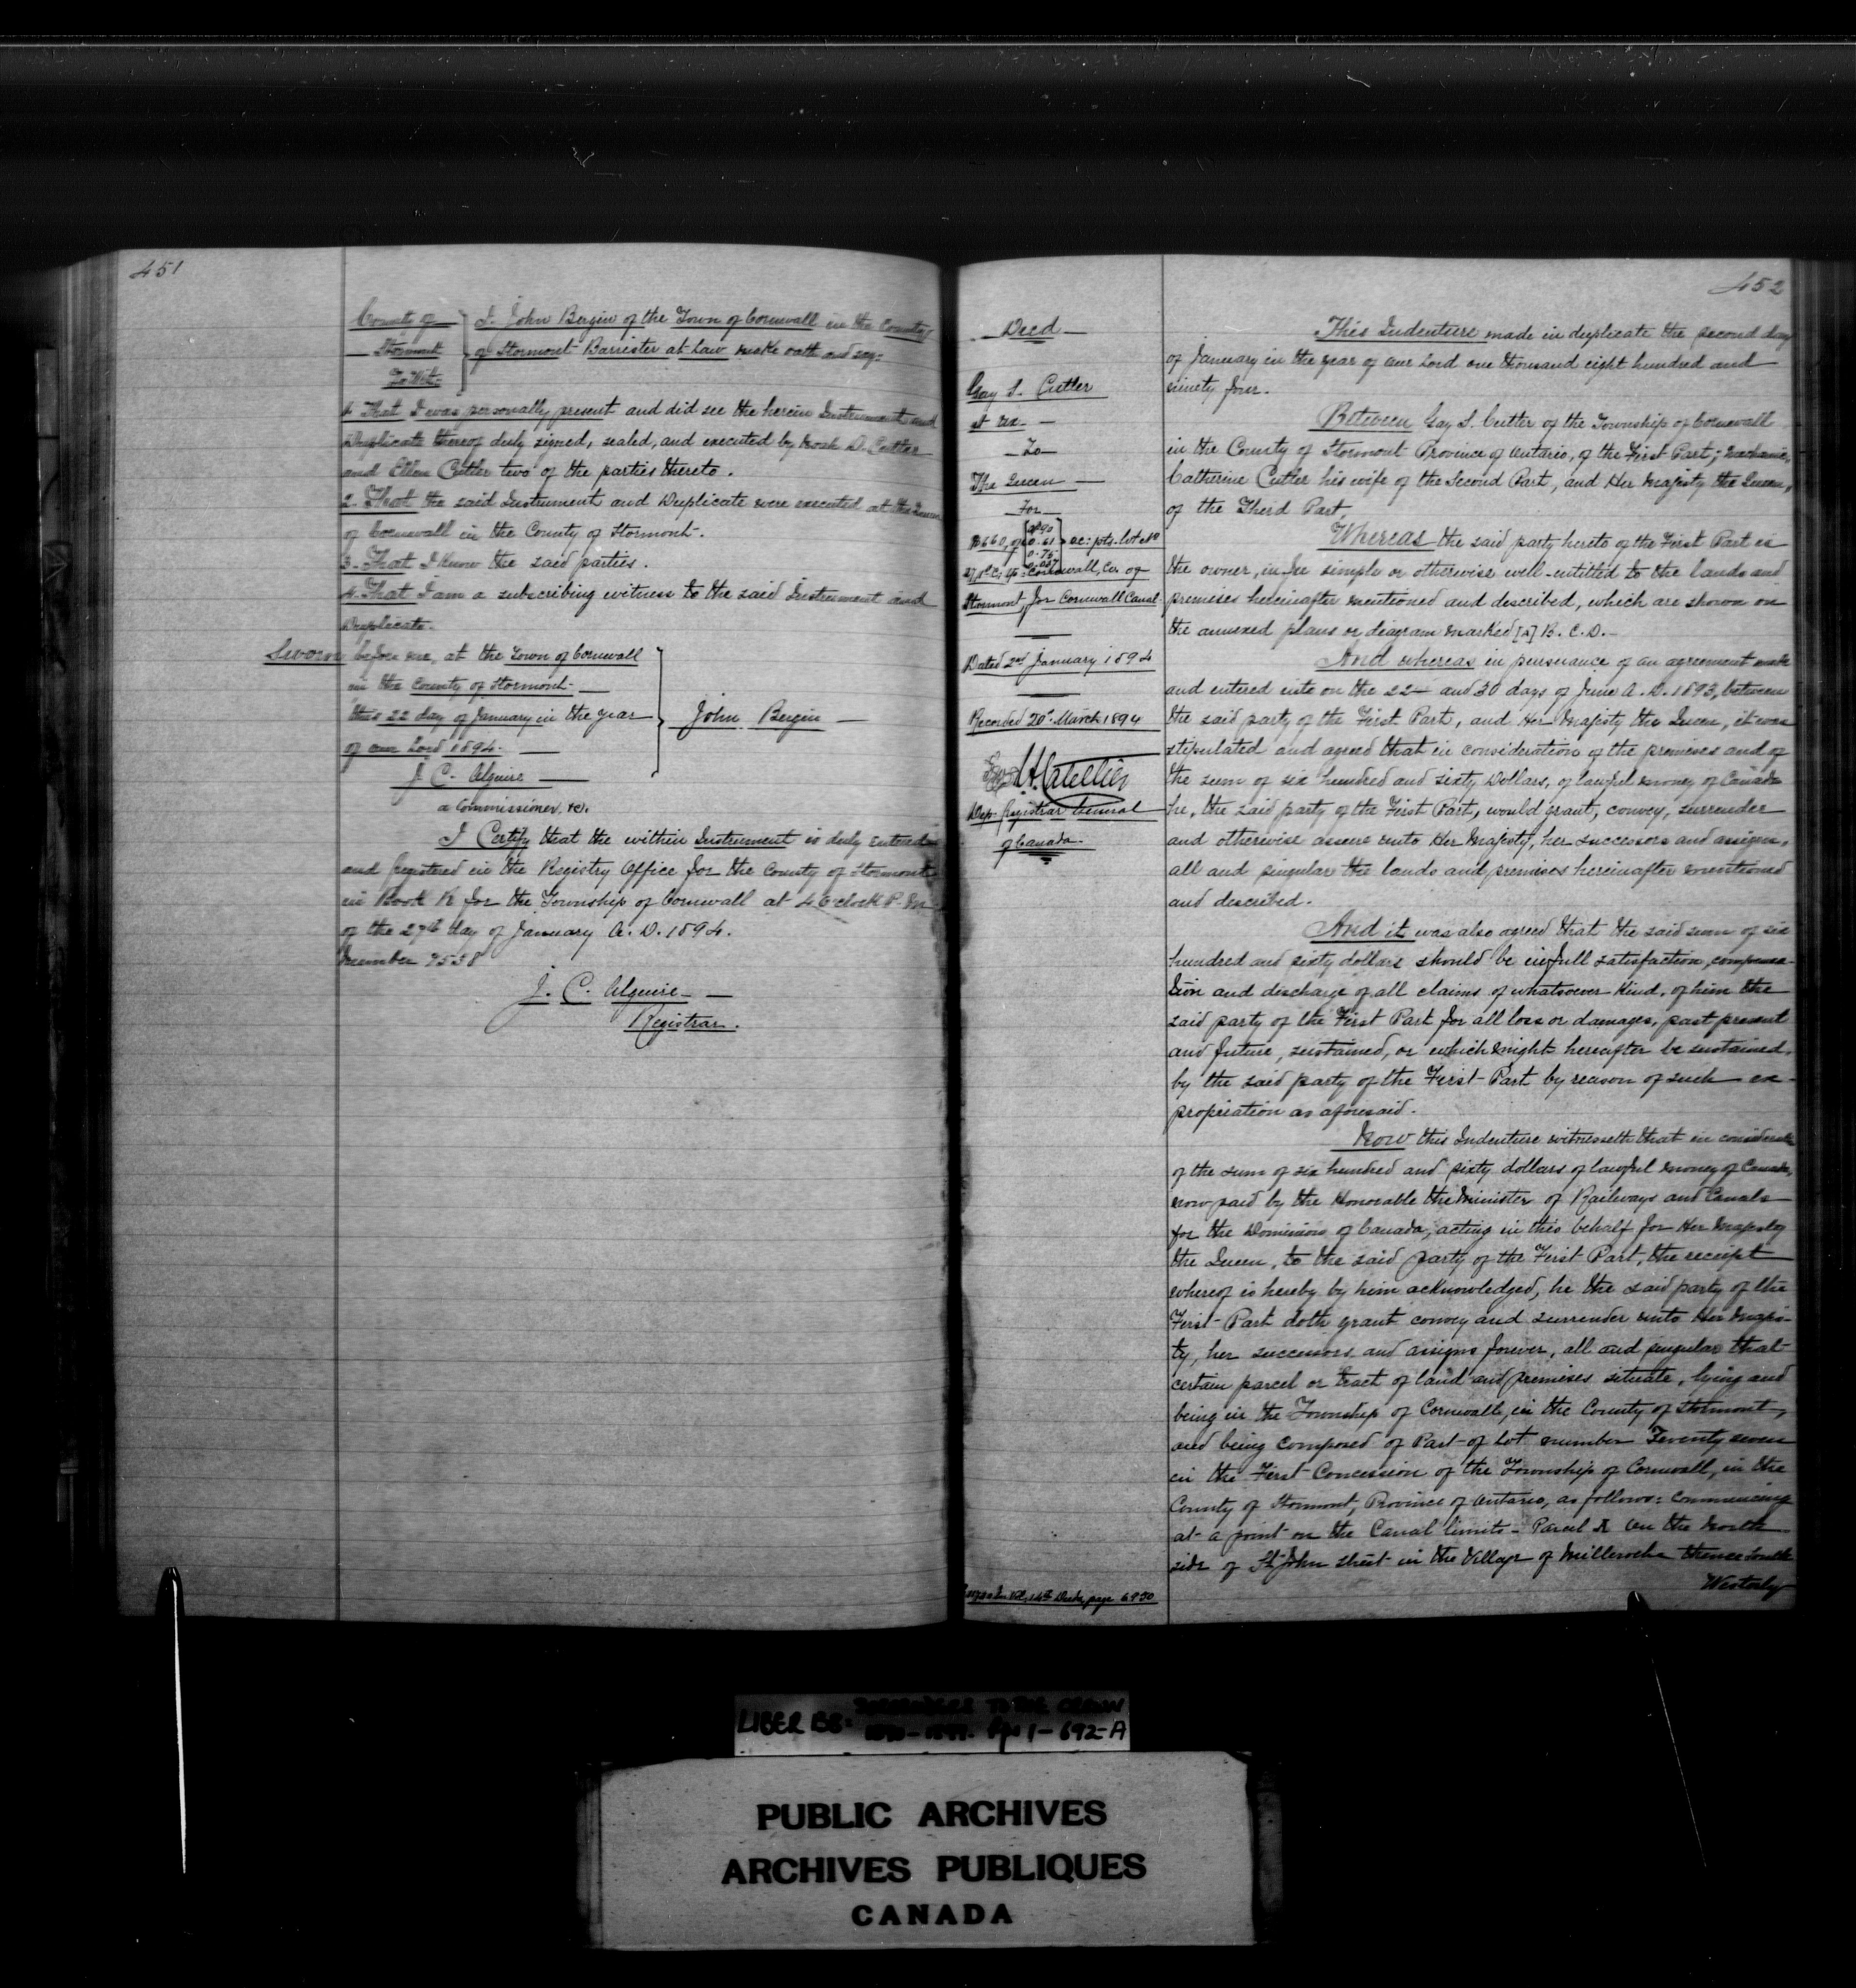 451
County of
Stormont
To Wit:
I, John Bergin of the Town of Cornwall in the County
of Stormont Barrister at Law make oath and say:
1. That I was personally present and did see the herein Instrument and
Duplicate thereof duly signed, sealed, and executed by Noah D. Cutler
and Ellen Cutler two of the parties thereto.
2. That the said Instrument and Duplicate were executed at the Town
of Cornwall in the County of Stormont.
3. That I know the said parties.
4. That I am a subscribing witness to the said Instrument and
Duplicate.
Sworn before me, at the Town of Cornwall
in the County of Stormont
this 22 day of January in the year
of our Lord 1894.
John Bergin
J. C. Alguire
a Commissioner, &c.
I Certify that the within Instrument is duly entered
and Registered in the Registry Office for the County of Stormont
in Book R for the Township of Cornwall at 4 O'clock P. M
of the 27th day of January A. D. 1894.
Number 7558
J. C. Alguire
Registrar.
452
Deed
Gay S. Cutler
et ux.
To
The Queen
For
$660, of 0.61 ac: pts. lot No
0.75
27, 1st C: tp: Cornwall, Co. of
Stormont, for Cornwall Canal
Dated 2nd January 1894
Recorded 20th March 1894
Dep. Registrar General
of Canada
This Indenture made in duplicate the second day
of January in the year of our Lord one thousand eight hundred and
ninety four.
Between Gay S. Cutler of the Township of Cornwall
in the County of Stormont Province of Ontario, of the First Part; mechanic,
Catherine Cutler his wife of the Second Part, and Her Majesty the Queen,
of the Third Part,
Whereas the said party hereto of the First Part is
the owner, in fee simple or otherwise well-entitled to the lands and
premises hereinafter mentioned and described, which are shown on
the annexed plans or diagram marked [A] B. C. D.
And whereas in pursuance of an agreement made
and entered into on the 22 and 30 days of June A. D. 1893, between
the said party of the First Part, and Her Majesty the Queen, it was
stipulated and agreed that in consideration of the premises and of
the sum of six hundred and sixty Dollars, of lawful money of Canada
he, the said party of the First Part, would grant, convey, surrender
and otherwise assure unto Her Majesty, her successors and assigns,
all and singular the lands and premises hereinafter mentioned
and described.
And it was also agreed that the said sum of six
hundred and sixty dollars should be in full satisfaction, compensa-
tion and discharge of all claims of whatsoever kind, of him the
said party of the First Part for all loss or damages, past present
and future, sustained, or which might hereafter be sustained,
by the said party of the First Part by reason of such ex-
propriation as aforesaid.
Now this Indenture witnesseth that in consideration
of the sum of six hundred and sixty dollars of lawful money of Canada,
now paid by the Honorable the Minister of Railways and Canals
for the Dominion of Canada, acting in this behalf for Her Majesty
the Queen, to the said party of the First Part, the receipt
whereof is hereby by him acknowledged, he the said party of the
First Part doth grant convey and surrender unto Her Majes-
ty, her successors and assigns forever, all and singular that
certain parcel or tract of land and premises situate, lying and
being in the Township of Cornwall, in the County of Stormont,
and being composed of Part of Lot number Twenty seven
in the First Concession of the Township of Cornwall, in the
County of Stormont, Province of Ontario, as follows: Commencing
at a point on the Canal limits - Parcel A On the North
side of St. John street in the Village of Milleroche thence South
Westerly
page 6930
LIBER BB: SURRENDERS TO THE CROWN
Pgs 1-692-A
PUBLIC ARCHIVES
ARCHIVES PUBLIQUES
CANADA